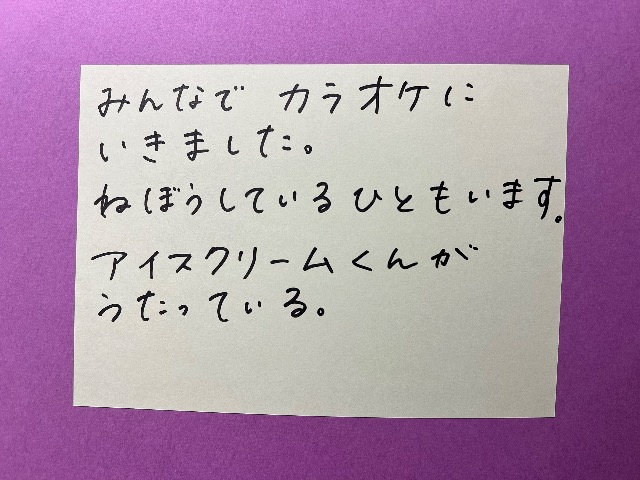 みんなで カラオケに
いきました。
ねぼうしているひともいます。
アイスクリームくんが
うたっている。